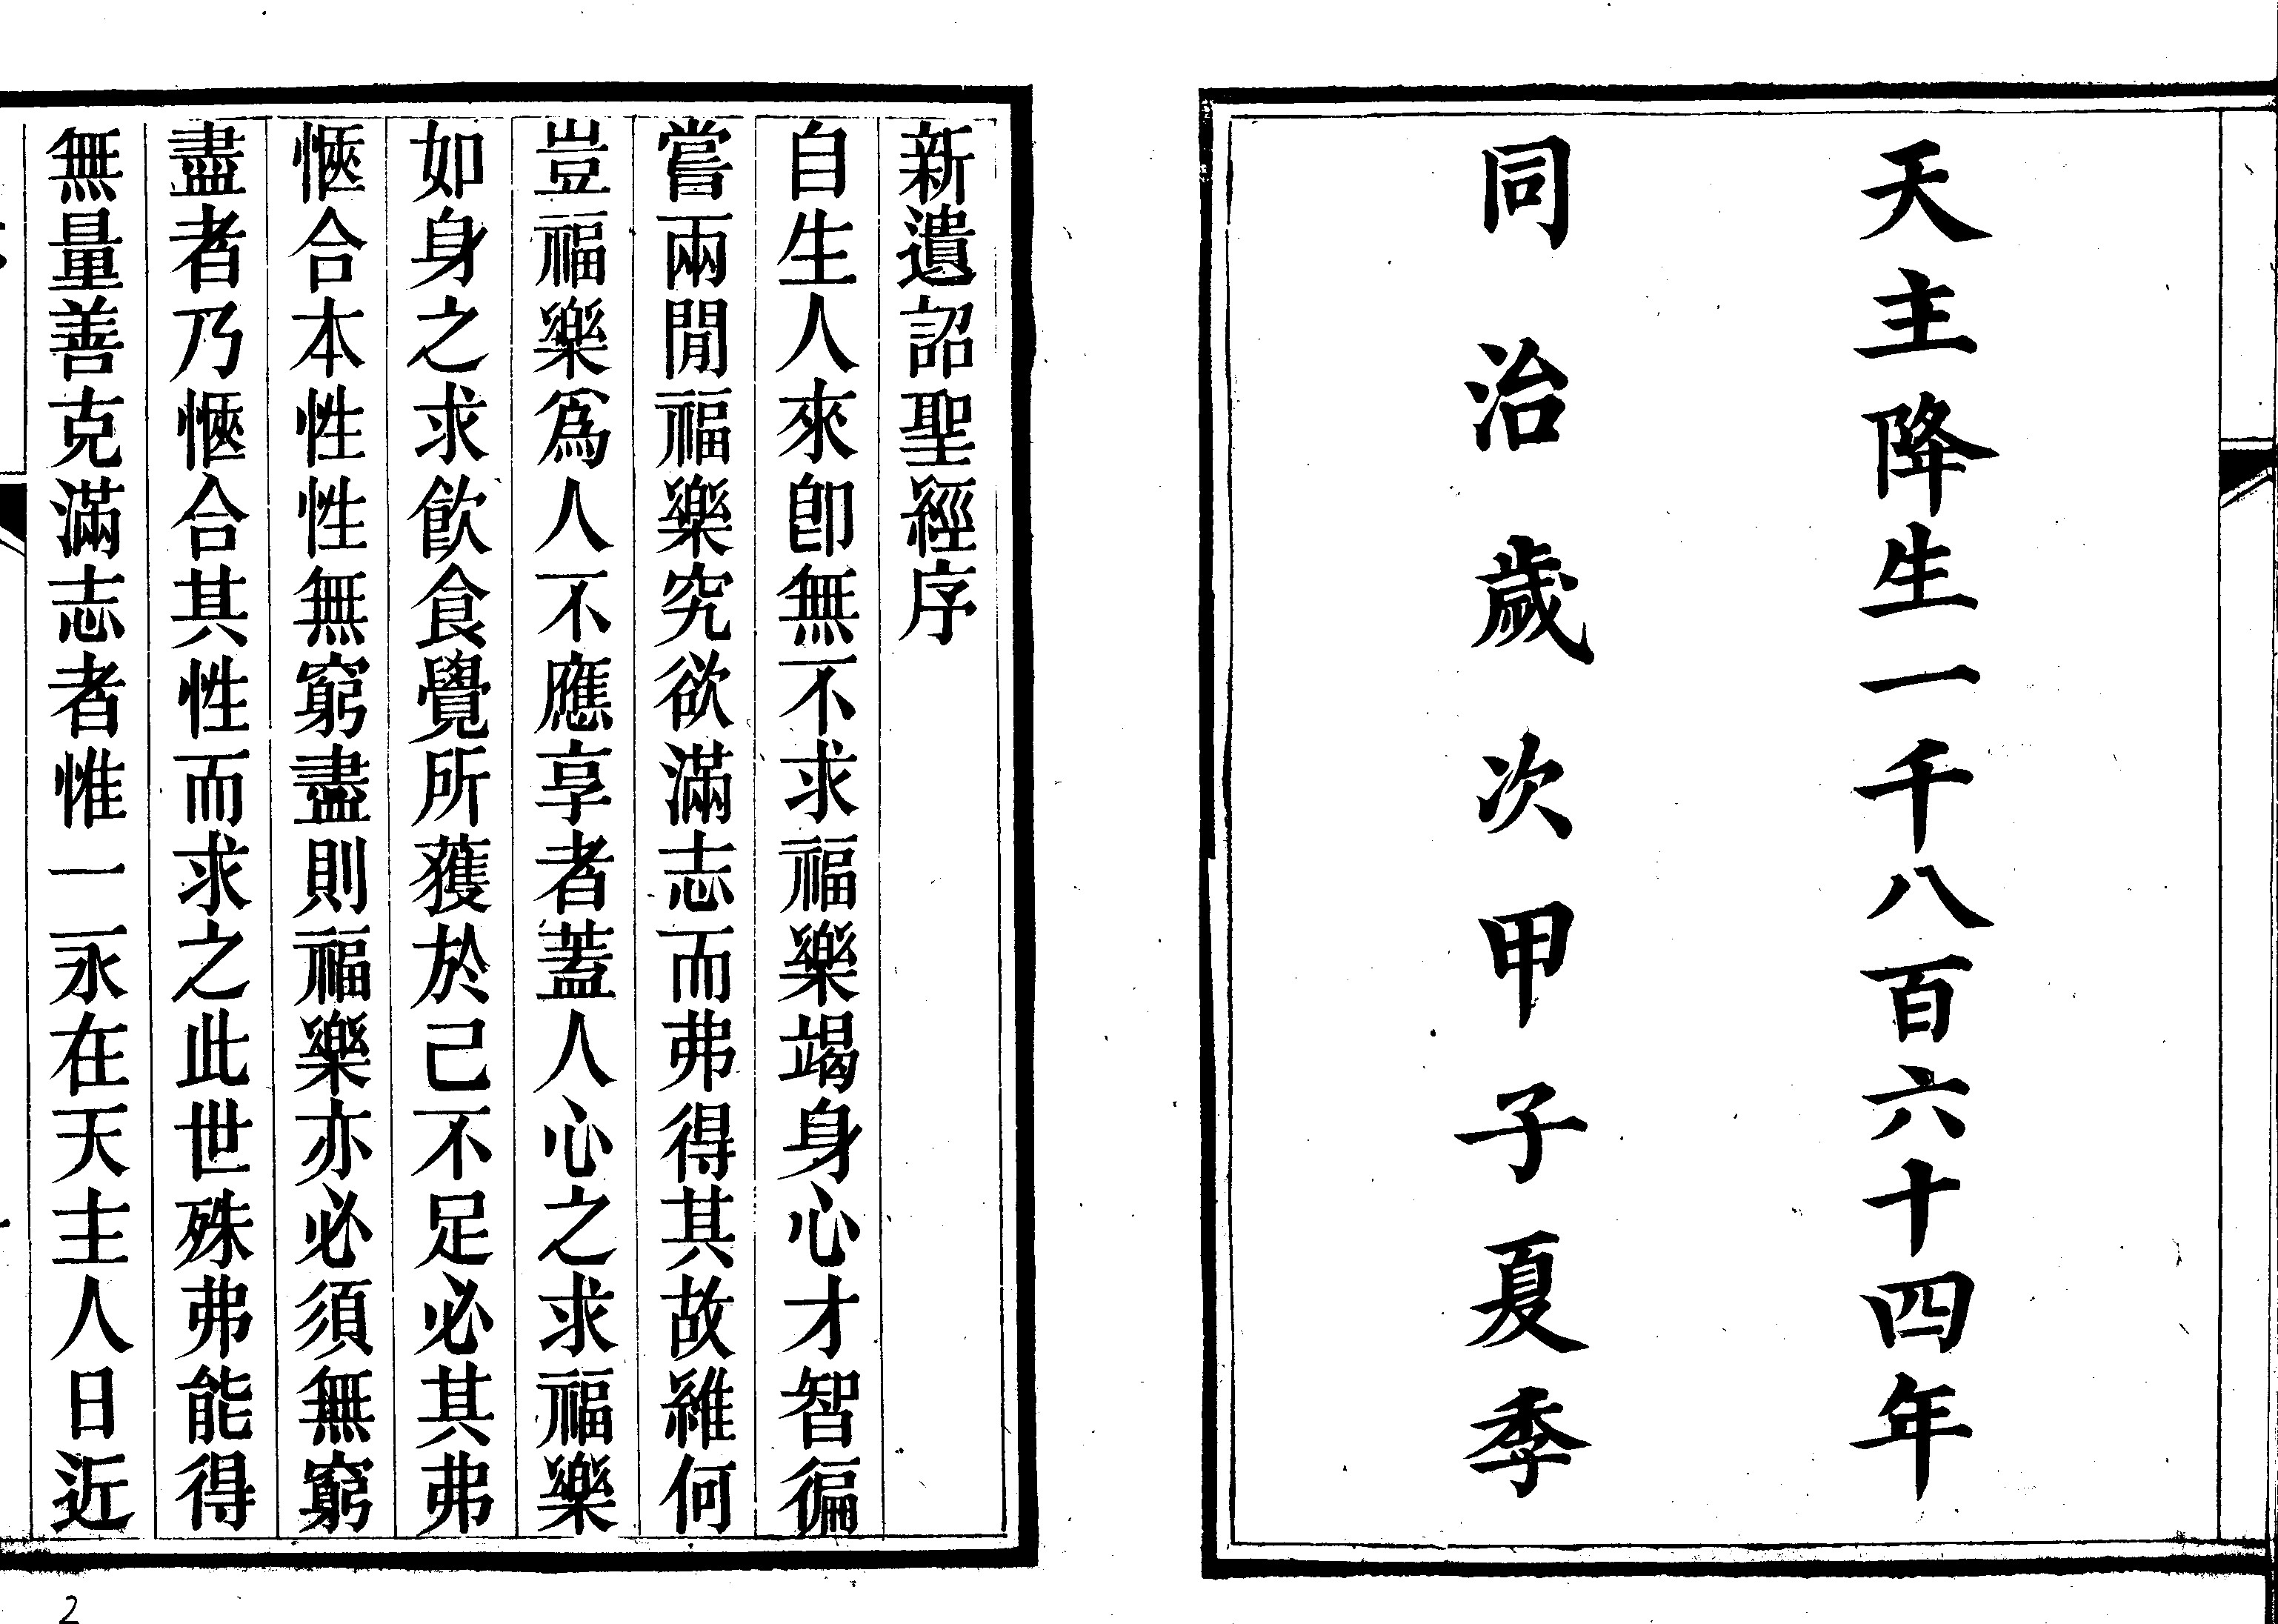 天主降生一千八百六十四年
同治歲次甲子夏季
新遺詔聖經序
自生人來卽無不求福樂竭身心才智徧
嘗兩閒福樂究欲滿志而弗得其故維何
豈福樂爲人不應享者蓋人心之求福樂
如身之求飮食覺所獲於己不足必其弗
愜合本性性無窮盡則福樂亦必須無窮
盡者乃愜合其性而求之此世殊弗能得
無量善克滿志者惟一永在天主人日近
2